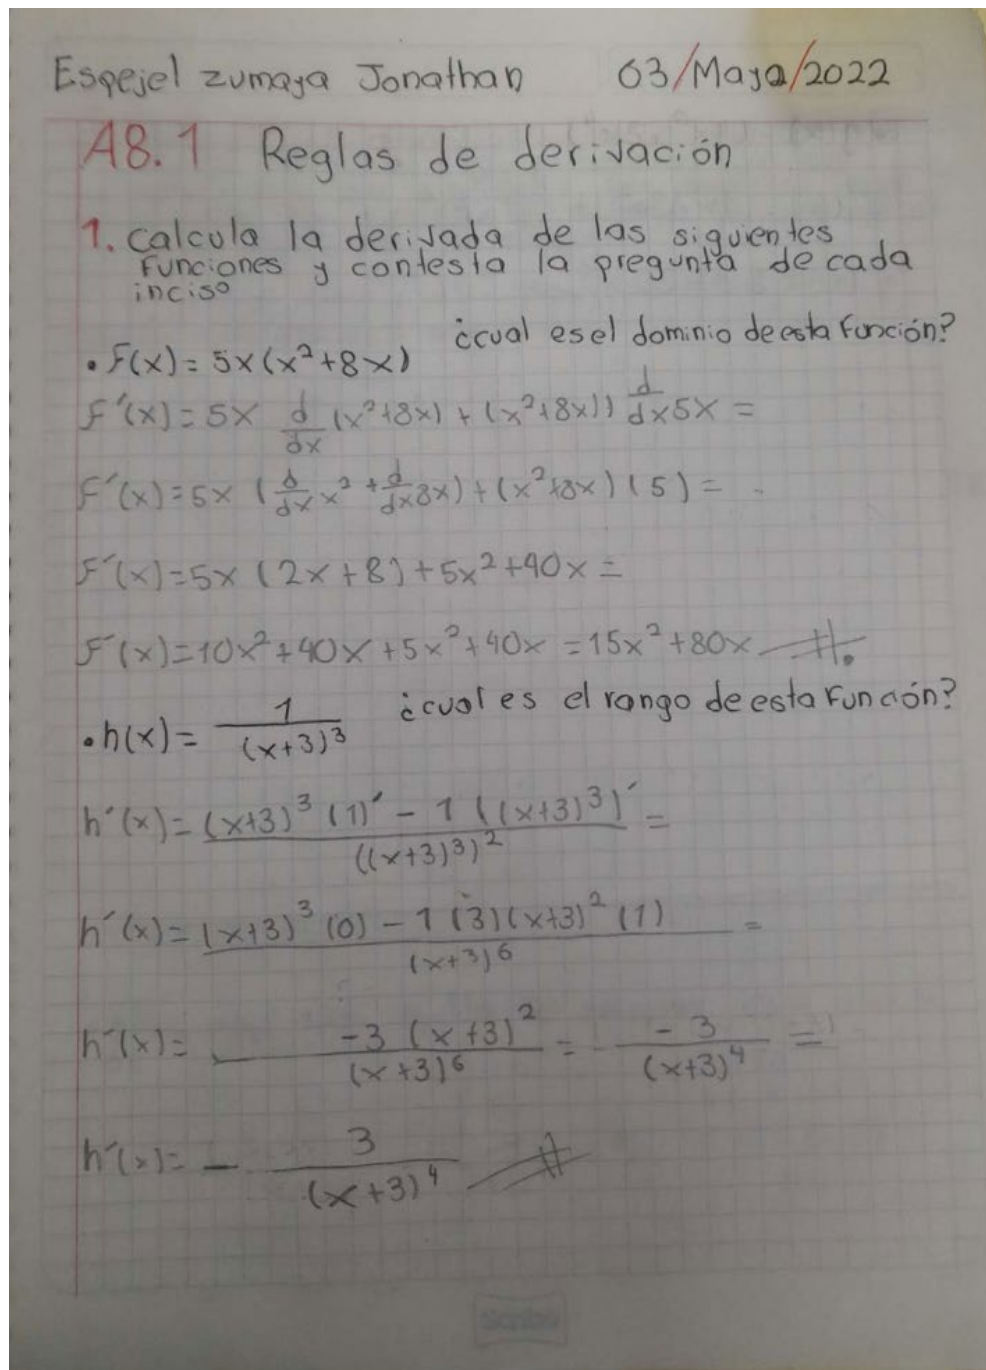 Espejel zumaya Jonathan 03/Mayo/2022
A8.1 Reglas de derivación
1. calcula la derivada de las siguientes
funciones y contesta la pregunta de cada
inciso
¿cual es el dominio de esta función?
• F(x) = 5x(x²+8x)
F'(x) = 5x d/dx (x²+8x) + (x²+8x)) d/dx 5x =
F'(x) = 5x (d/dx x² + d/dx 8x) + (x²+8x) (5) =
F'(x) = 5x (2x+8) + 5x²+40x =
F'(x) = 10x²+40x+5x²+40x = 15x²+80x
¿cual es el rango de esta función?
• h(x) = 1/(x+3)³
h'(x) = (x+3)³ (1)' - 1 ((x+3)³)' / ((x+3)³)² =
h'(x) = (x+3)³ (0) - 1 (3)(x+3)² (1) / (x+3)⁶ =
h'(x) = -3 (x+3)² / (x+3)⁶ = -3 / (x+3)⁴ =
h'(x) = - 3 / (x+3)⁴
Scribe